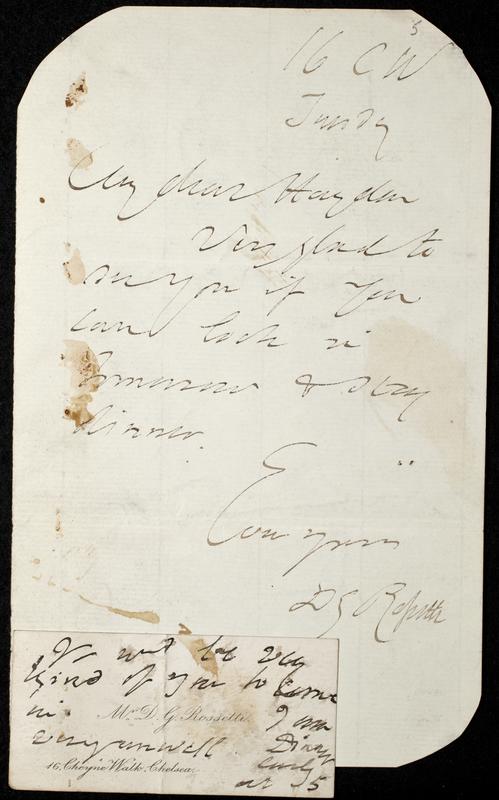 5
16 C W
Tuesday
My dear Haydon
Very glad to
see you if you
can look in
tomorrow & stay
dinner.
Ever yours
D G Rossetti
It wd be very
kind of you to come
in. I am
Mr. D. G. Rossetti.
very unwell. Dinner
early
16, Cheyne Walk, Chelsea.
at 5